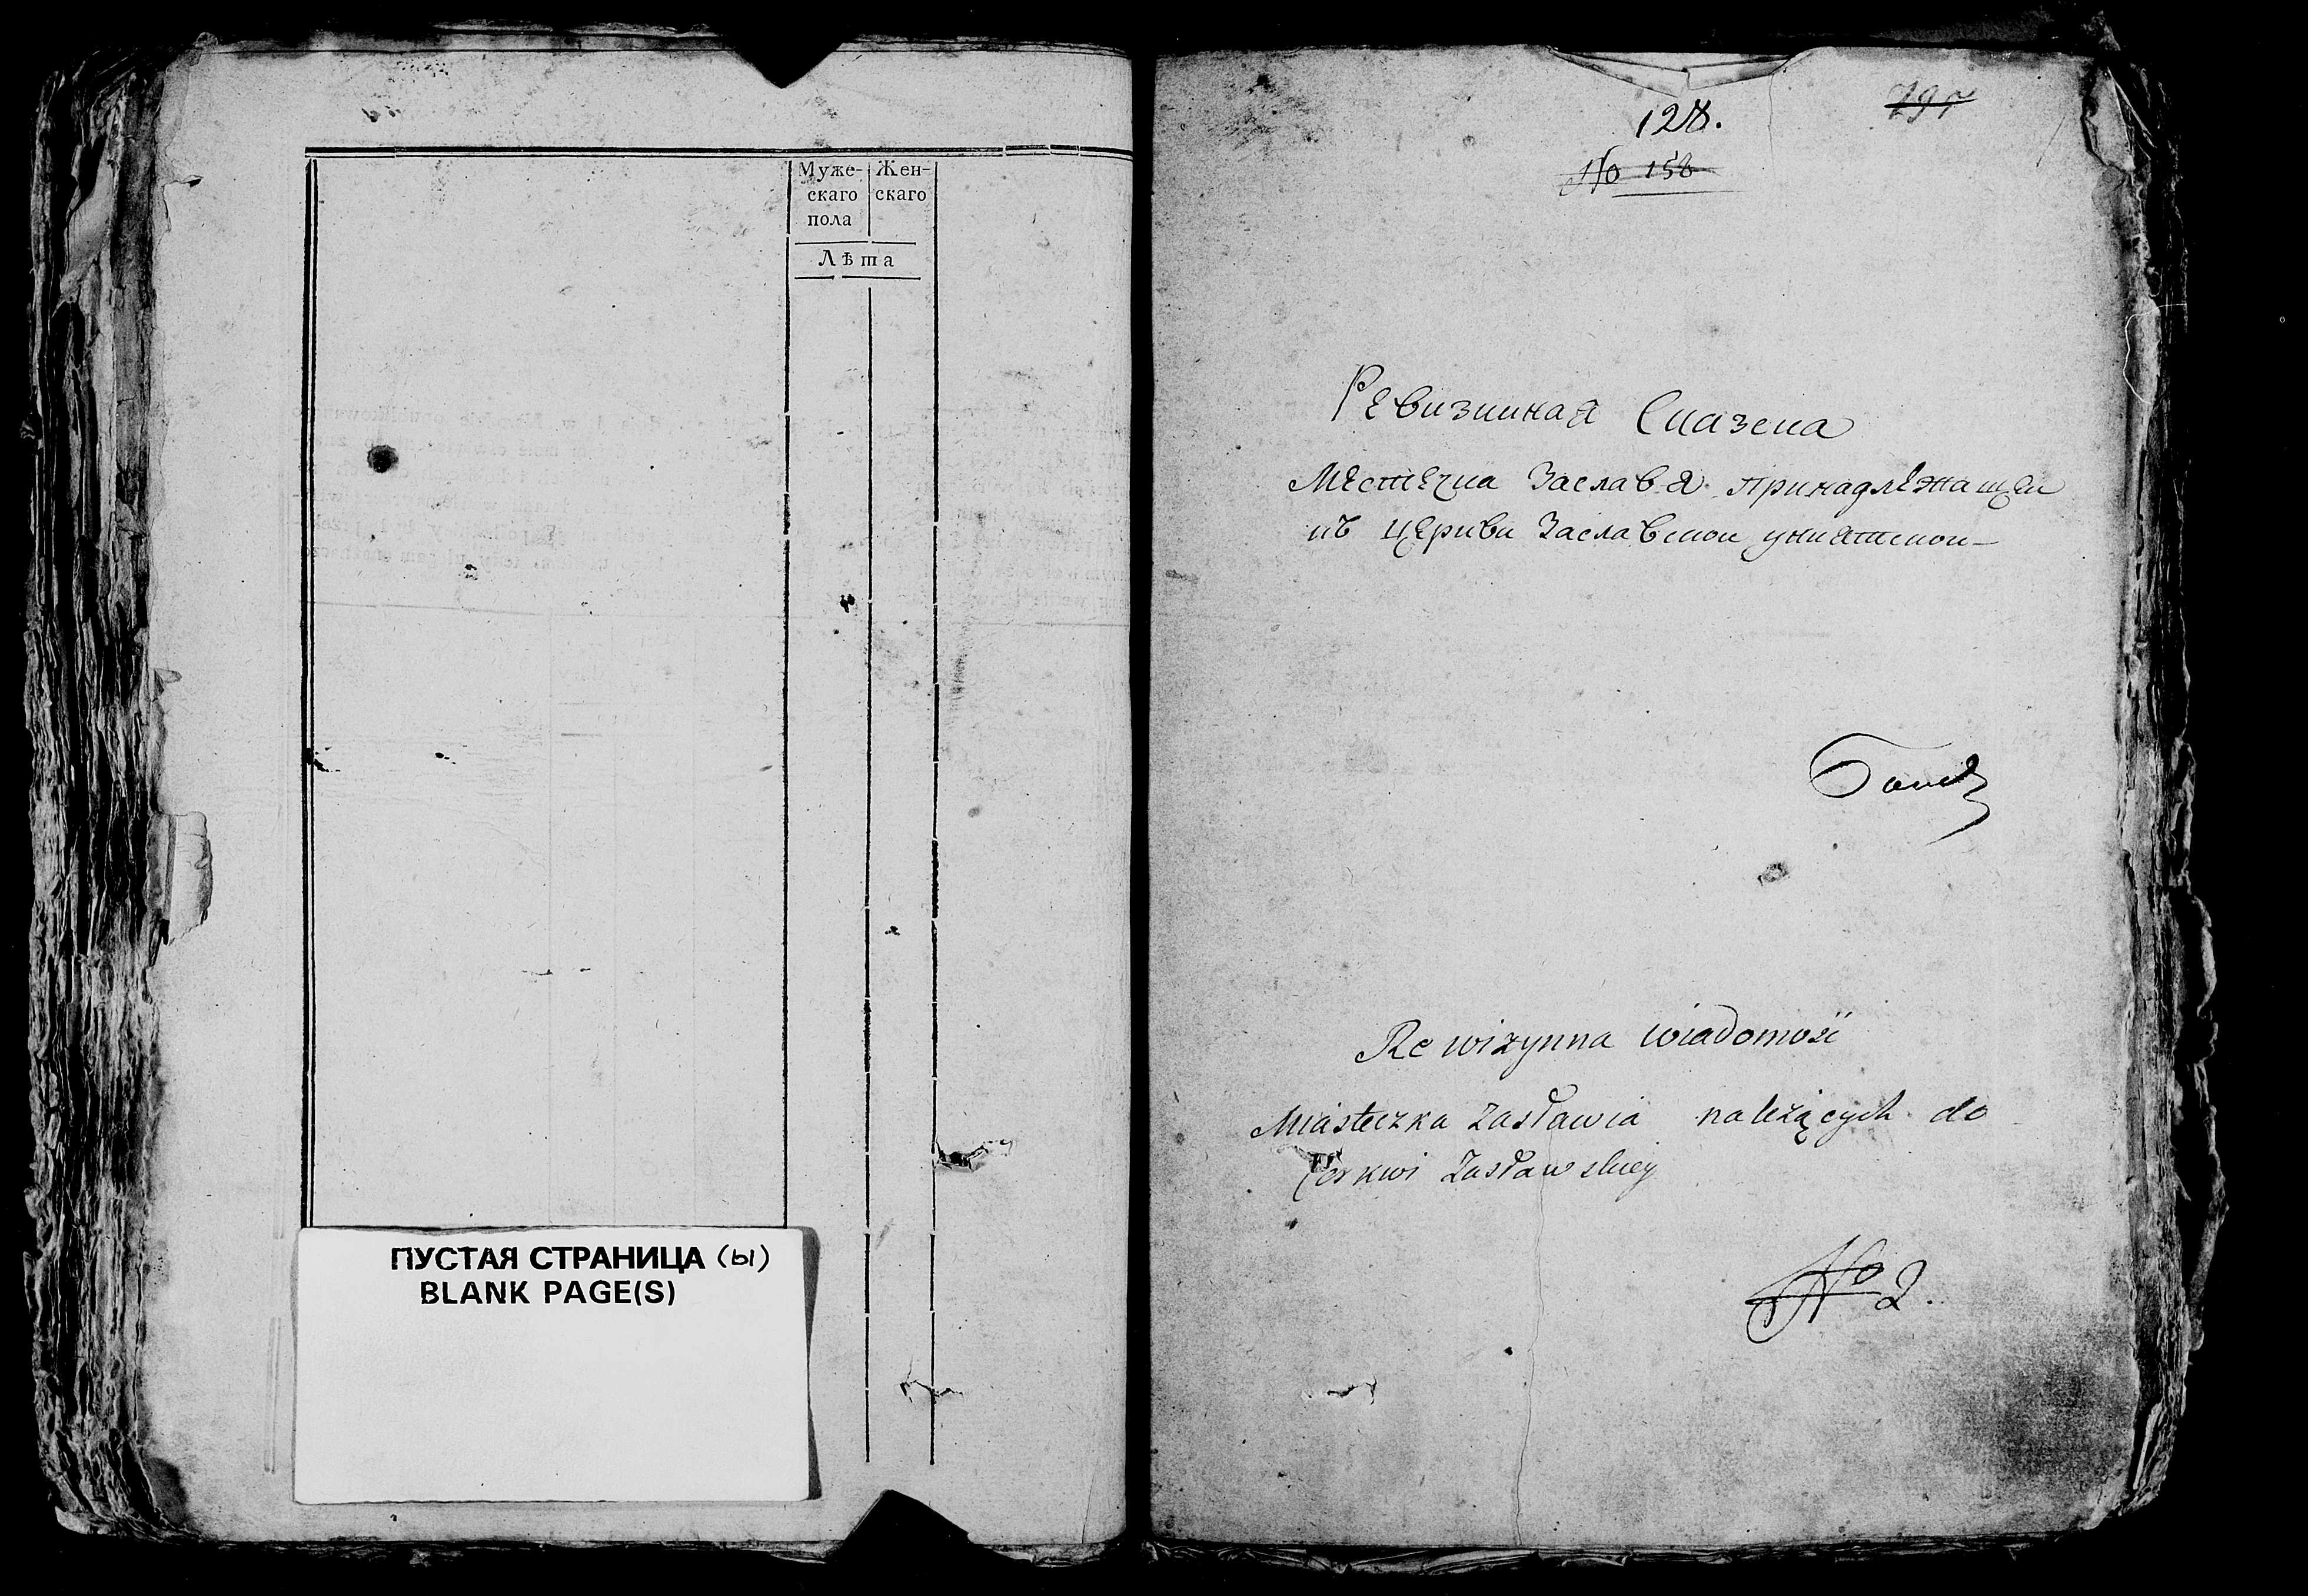 Муже-
скаго
пола
Жен-
скаго
Лѣта
ПУСТАЯ СТРАНИЦА (ы)
BLANK PAGE(S)
128.
No 158
Ревизииная Сказека
Местечка Заславя принадлежащеи
къ церкви Заславскои униятскои
Rewizynna wiadomość
Miasteczka Zasławia należących do
Cerkwi Zasławskiey
No 2.